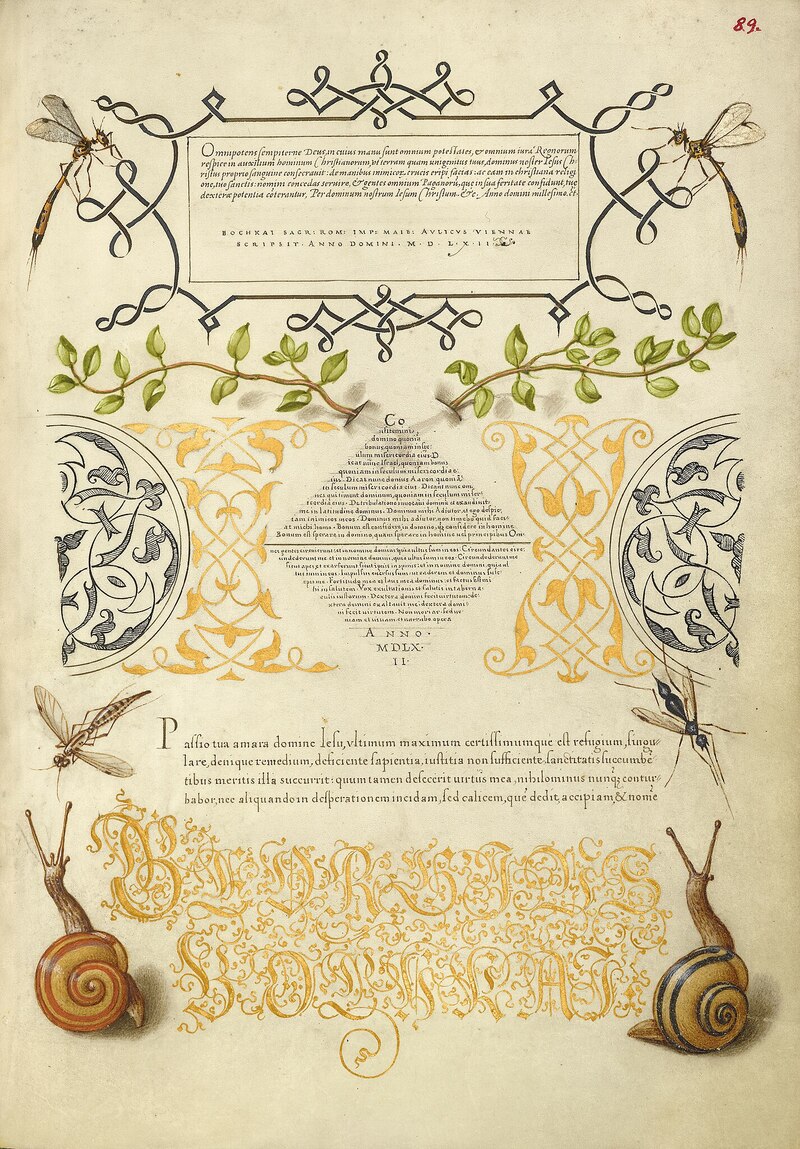 89.
Omnipotens sempiterne Deus, in cuius manu sunt omnium potestates, & omnium iura Regnorum
respice in auxilium hominum Christianorum, ut terram quam unigenitus tuus, dominus noster Iesus Ch-
ristus proprio sanguine consecravit: de manibus inimicorum crucis eripi facias: ac eam in christiana religi
one, tuo sancto nomini concedas servire, & gentes omnium Paganorū, que in sua feritate confidunt, tuę
dexterę potentia coterantur, Per dominum nostrum Iesum Christum. &c. Anno domini millesimo. et
BOCHKAI SACR: ROM: IMP: MAIE: AVLICVS VIENNAE
SCRIPSIT. ANNO DOMINI. M. D. L. X. II.
Co
nfitemini
domino quoniā
bonus, quoniam in sęc-
ulum misericordia eius. D
icat nunc Israel, quoniam bonus
quoniam in seculum misericordia e-
ius. Dicat nunc domus Aaron quoniā
in seculum misericordia eius. Dicant nunc om-
nes qui timent dominum, quoniam in seculum miser-
cordia eius. De tribulatione invocavi dominū et exaudivit
me in latitudine dominus. Dominus mihi Adiutor, et ego despic-
iam inimicos meos. Dominus mihi adiutor, non timebo quid faci-
at michi homo. Bonum est confidere in domino, quā confidere in homine
Bonum est sperare in domino, quam sperare in principibus Om-
nes gentes circuierunt me: et in nomine domini, quia ultus sum in eos. Circumdantes circ-
undederunt me: et in nomine domini, quia ultus sum in eos. Circumdederunt me
sicut apes, et exarserunt sicut ignis in spinis: et in nomine domini, quia ul
tus sum in eos. Impulsus eversus sum, ut caderem: et dominus susc-
epit me. Fortitudo mea et laus mea dominus: et factus est mi
hi in salutem. Vox exultationis et salutis in taberna-
culis iustorum. Dextera domini fecit virtutem: de-
xtera domini exaltavit me: dextera domi-
ni fecit virtutem. Non moriar, sed vi-
vam: et narrabo opera
ANNO.
MDLX.
II.
Passio tua amara domine Iesu, ultimum maximum certissimumque est refugium, singu-
lare, denique remedium, deficiente sapientia, iustitia non sufficiente sanctitatis succumbē
tibus meritis illa succurrit: quum tamen defecerit virtus mea, nihilominus nunq; contur-
babor, nec aliquando in desperationem incidam, sed calicem, quē dedit, accipiam, & nomē
GEORGIVS
BOCHKAI